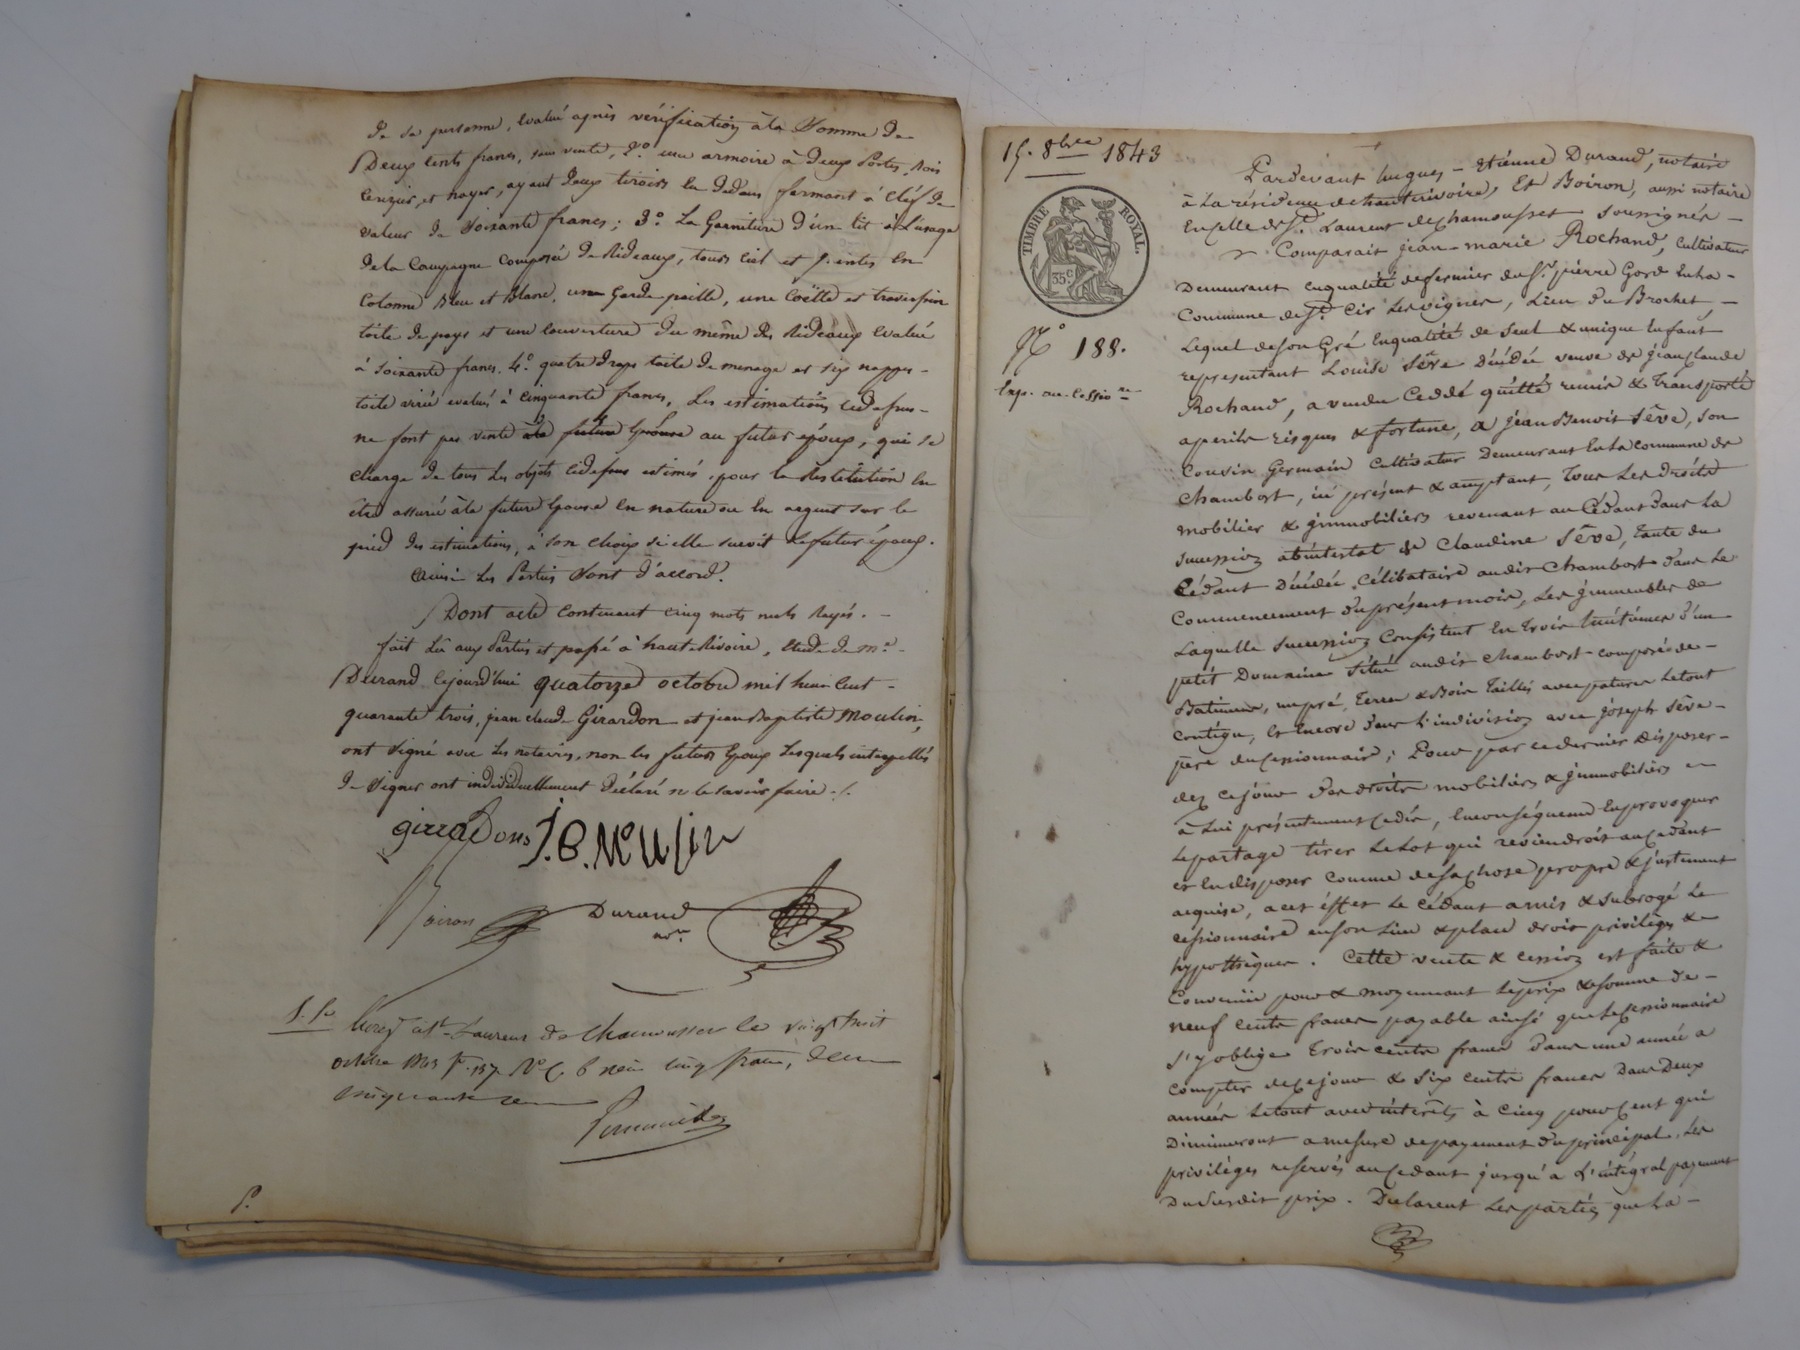 de sa personne, évalué après vérification à la somme de
Deux cents francs, sans vente, 2.o une armoire à deux portes, bois
cerizier, et noyer, ayant deux tiroirs en dedans fermant à clef de
valeur de soixante francs ; 3.o La Garniture d'un lit à l'usage
de la Campagne composée de Rideaux, tours ciel et pentes en
Cotonne Bleu et Blanc, une Garde paille, une Coëtte et traversin
toile de pays et une Couverture du même des Rideaux évalué
à soixante francs. 4.o quatre draps toile de menage et six nappes -
toile évalués à Cinquante francs. Les estimations cidessus -
ne font pas vente à la future Epouse au futur époux, qui se
charge de tous les objets cidessus estimés, pour la Restitution en
être assurée à la future Epouse en nature ou en argent sur le
pied des estimations, à son choix si elle survit le futur époux.
Ainsi les Parties sont d'accord.
Dont acte contenant cinq mots nuls Rayés. -
fait Lu aux Parties et passé à haute-Rivoire, Etude de m.e -
Durand cejourd'hui quatorze octobre mil huit cent -
quarante trois, jean claude Girardon et jean Baptiste Moulin,
ont signé avec les notaires, non les futurs Epoux lesquels interpellés
de signer ont individuellement déclaré ne le savoir faire ./.
girardons J.B. Moulin
Boiron Durand
nore
à St. Laurent de Chamousset le vingt huit
octobre 1843 f.o 137 V.o C. 6 reçu cinq francs, decime
cinquante cen
15. 8bre 1843
TIMBRE ROYAL.
35c
N.o 188.
Exp. au Cessio.re
Pardevant hugues - etienne Durand, notaire
à la résidence de hauterivoire, Et Boiron, aussi notaire
En celle de St. Laurent de chamousset soussignés -
Comparait jean-marie Rochand, cultivateur
Demeurant en qualité de fermier du S.r pierre Gord en la -
Commune de St. Cir les vignes, Lieu du Brochet, -
Lequel de son Gré En qualité de seul & unique Enfant
representant Louise Sêve décédée veuve de jean Claude
Rochand, a vendu Ceddé quitté remis & transporté
a perils risques & fortune, a jean Benoit Sêve, son
Cousin Germain Cultivateur Demeurant En la commune de
Chambost, ici présent & acceptant, Tous les droits
mobilier & jmmobiliers revenant au Cédant dans La
succession abintestat de Claudine Sêve, tante du
Cédant Décédée Célibataire audit Chambost dans le
Commencement du présent mois, Les jmmeubles de
Laquelle succession Consistent En trois huitièmes d'un
petit Domaine situé audit Chambost composé de -
Batiment, un pré, Terre & Bois Taillis avec patures Le tout
Contigu, Et Encore dans l'indivision avec joseph Sêve -
père du cessionnaire ; Pour par ce dernier Disposer -
dez ce jour des droits mobiliers & jmmobiliers -
à Lui présentement cedés, En conséquence En provoquer
Le partage tirer Le Lot qui reviendroit au Cedant
et En disposer Comme de sa Chose propre & justement
acquise, a cet effet Le Cédant a mis & Subrogé Le
cessionnaire en son Lieu & place droit privilèges &
hypothèques. Cette vente & cession est faite &
Convenüe pour & moyennant Le prix & somme de -
neuf cents francs payable ainsi que Le Cessionnaire
s'y oblige trois cents francs Dans une année a
compter de ce jour & six cents francs Dans Deux
années Le tout avec intérêts à cinq pour Cent qui
Diminueront a mesure de payement du principal, Les
privilèges reservés au Cedant jusqu'a L'intégral payement
Du susdit prix. Déclarent Les parties que La -